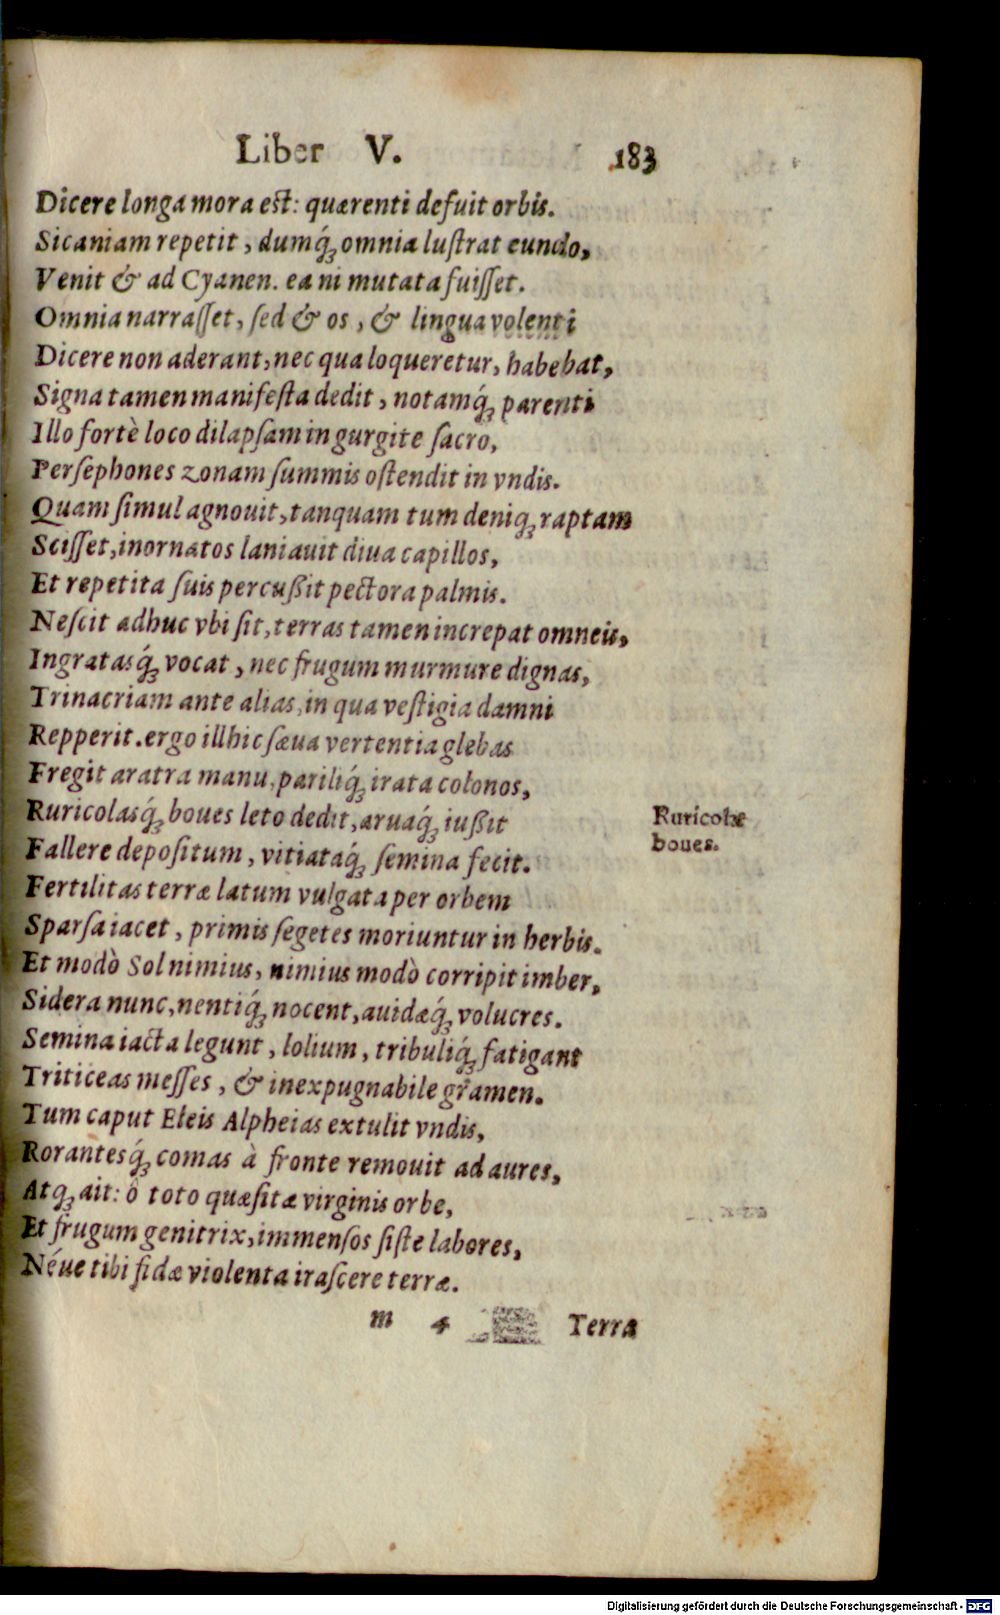 Liber V. 183
Dicere longa mora est: quærenti defuit orbis.
Sicaniam repetit, dumq́ꝫ omnia luſtrat eundo,
Venit & ad Cyanen. ea ni mutata fuiſſet.
Omnia narraſſet, ſed & os, & lingua volenti
Dicere non aderant, nec qua loqueretur, habebat,
Signa tamen manifeſta dedit, notamq́ꝫ parenti
Illo fortè loco dilapſam in gurgite ſacro,
Perſephones zonam ſummis oſtendit in vndis.
Quam ſimul agnouit, tanquam tum deniqꝫ raptam
Sciſſet, inornatos laniauit diua capillos,
Et repetita ſuis percußit pectora palmis.
Neſcit adhuc vbi ſit, terras tamen increpat omneis,
Ingratasq́ꝫ vocat, nec frugum murmure dignas,
Trinacriam ante alias, in qua veſtigia damni
Repperit. ergo illhic ſæua vertentia glebas
Fregit aratra manu, pariliq́ꝫ irata colonos,
Ruricolasq́ꝫ boues leto dedit, aruaq́ꝫ iußit
Ruricolæ
boues.
Fallere depoſitum, vitiataq́ꝫ ſemina fecit.
Fertilitas terræ latum vulgata per orbem
Sparſa iacet, primis ſegetes moriuntur in herbis.
Et modò Sol nimius, nimius modò corripit imber,
Sidera nunc, nentiq́ꝫ nocent, auidæq́ꝫ volucres.
Semina iacta legunt, lolium, tribuliq́ꝫ fatigant
Triticeas meſſes, & inexpugnabile gramen.
Tum caput Eleis Alpheias extulit vndis,
Rorantesq́ꝫ comas à fronte remouit ad aures,
Atqꝫ ait: ô toto quæſitæ virginis orbe,
Et frugum genitrix, immenſos ſiſte labores,
Néue tibi fidæ violenta iraſcere terræ.
m 4 Terra
Digitalisierung gefördert durch die Deutsche Forschungsgemeinschaft - DFG